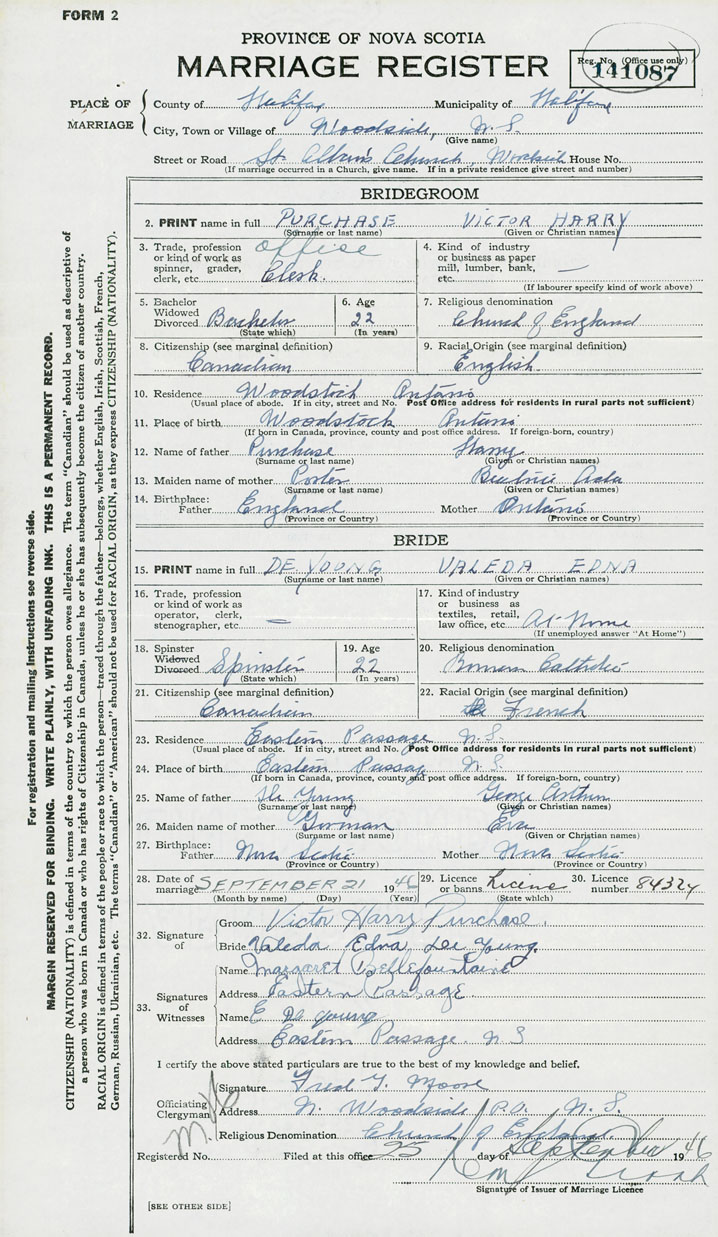 FORM 2
PROVINCE OF NOVA SCOTIA
MARRIAGE REGISTER
Reg. No. (Office use only)
141087
PLACE OF MARRIAGE
County of Halifax Municipality of Halifax
City, Town or Village of Woodside, N. S.
(Give name)
Street or Road St. Alban's Church, Woodside House No.
(If marriage occurred in a Church, give name. If in a private residence give street and number)
BRIDEGROOM
2. PRINT name in full PURCHASE VICTOR HARRY
(Surname or last name) (Given or Christian names)
3. Trade, profession or kind of work as spinner, grader, clerk, etc. office Clerk.
4. Kind of industry or business as paper mill, lumber, bank, etc. —
(If labourer specify kind of work above)
5. Bachelor Widowed Divorced Bachelor
(State which)
6. Age 22
(In years)
7. Religious denomination
Church of England
8. Citizenship (see marginal definition)
Canadian
9. Racial Origin (see marginal definition)
English
10. Residence Woodstock Ontario
(Usual place of abode. If in city, street and No. Post Office address for residents in rural parts not sufficient)
11. Place of birth Woodstock Ontario
(If born in Canada, province, county and post office address. If foreign-born, country)
12. Name of father Purchase Harry
(Surname or last name) (Given or Christian names)
13. Maiden name of mother Porter Beatrice Ada
(Surname or last name) (Given or Christian names)
14. Birthplace:
Father England Mother Ontario
(Province or Country) (Province or Country)
BRIDE
15. PRINT name in full DE YOUNG VALEDA EDNA
(Surname or last name) (Given or Christian names)
16. Trade, profession or kind of work as operator, clerk, stenographer, etc. —
17. Kind of industry or business as textiles, retail, law office, etc. At Home
(If unemployed answer "At Home")
18. Spinster Widowed Divorced Spinster
(State which)
19. Age 22
(In years)
20. Religious denomination
Roman Catholic
21. Citizenship (see marginal definition)
Canadian
22. Racial Origin (see marginal definition)
French
23. Residence Eastern Passage N. S.
(Usual place of abode. If in city, street and No. Post Office address for residents in rural parts not sufficient)
24. Place of birth Eastern Passage N. S.
(If born in Canada, province, county and post office address. If foreign-born, country)
25. Name of father De Young George Arthur
(Surname or last name) (Given or Christian names)
26. Maiden name of mother Gorman Eva
(Surname or last name) (Given or Christian names)
27. Birthplace:
Father Nova Scotia Mother Nova Scotia
(Province or Country) (Province or Country)
28. Date of marriage SEPTEMBER 21 1946
(Month by name) (Day) (Year)
29. Licence or banns License
(State which)
30. Licence number 84324
32. Signature of
Groom Victor Harry Purchase
Bride Valeda Edna De Young
33. Signatures of Witnesses
Name Margaret Bellefountaine
Address Eastern Passage
Name E De young
Address Eastern Passage. N S
I certify the above stated particulars are true to the best of my knowledge and belief.
Officiating Clergyman
Signature Fred T. Moore
Address N. Woodside P.O. N. S.
Religious Denomination Church of England.
Registered No. Filed at this office 25 day of September 1946
Signature of Issuer of Marriage Licence
[SEE OTHER SIDE]
For registration and mailing instructions see reverse side.
MARGIN RESERVED FOR BINDING. WRITE PLAINLY, WITH UNFADING INK. THIS IS A PERMANENT RECORD.
CITIZENSHIP (NATIONALITY) is defined in terms of the country to which the person owes allegiance. The term "Canadian" should be used as descriptive of
a person who was born in Canada or who has rights of Citizenship in Canada, unless he or she has subsequently become the citizen of another country.
RACIAL ORIGIN is defined in terms of the people or race to which the person—traced through the father—belongs, whether English, Irish, Scottish, French,
German, Russian, Ukrainian, etc. The terms "Canadian" or "American" should not be used for RACIAL ORIGIN, as they express CITIZENSHIP (NATIONALITY).